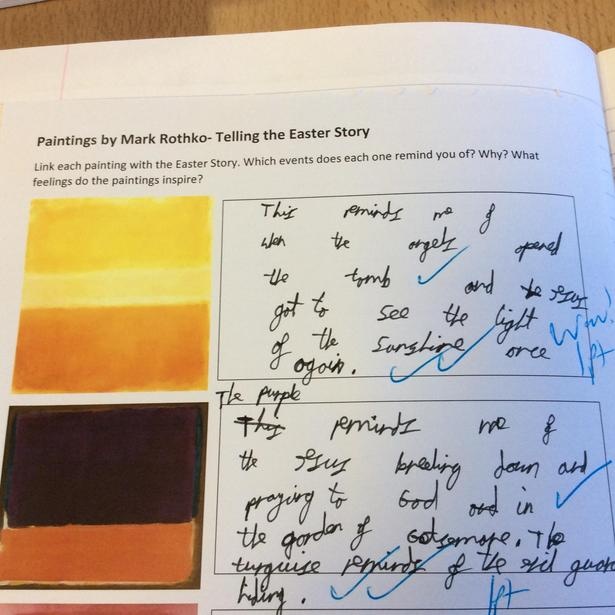 Paintings by Mark Rothko- Telling the Easter Story
Link each painting with the Easter Story. Which events does each one remind you of? Why? What
feelings do the paintings inspire?
This reminds me of
wen the angels opened
the tomb and jesus
got to see the light
of the Sunshine once
again.
Wow!
1pt
The purple
This reminds me of
the jesus breeding down and
praying to God and in
the garden of Getsemane. The
turquise reminds of the evil guard
hiding.
1pt